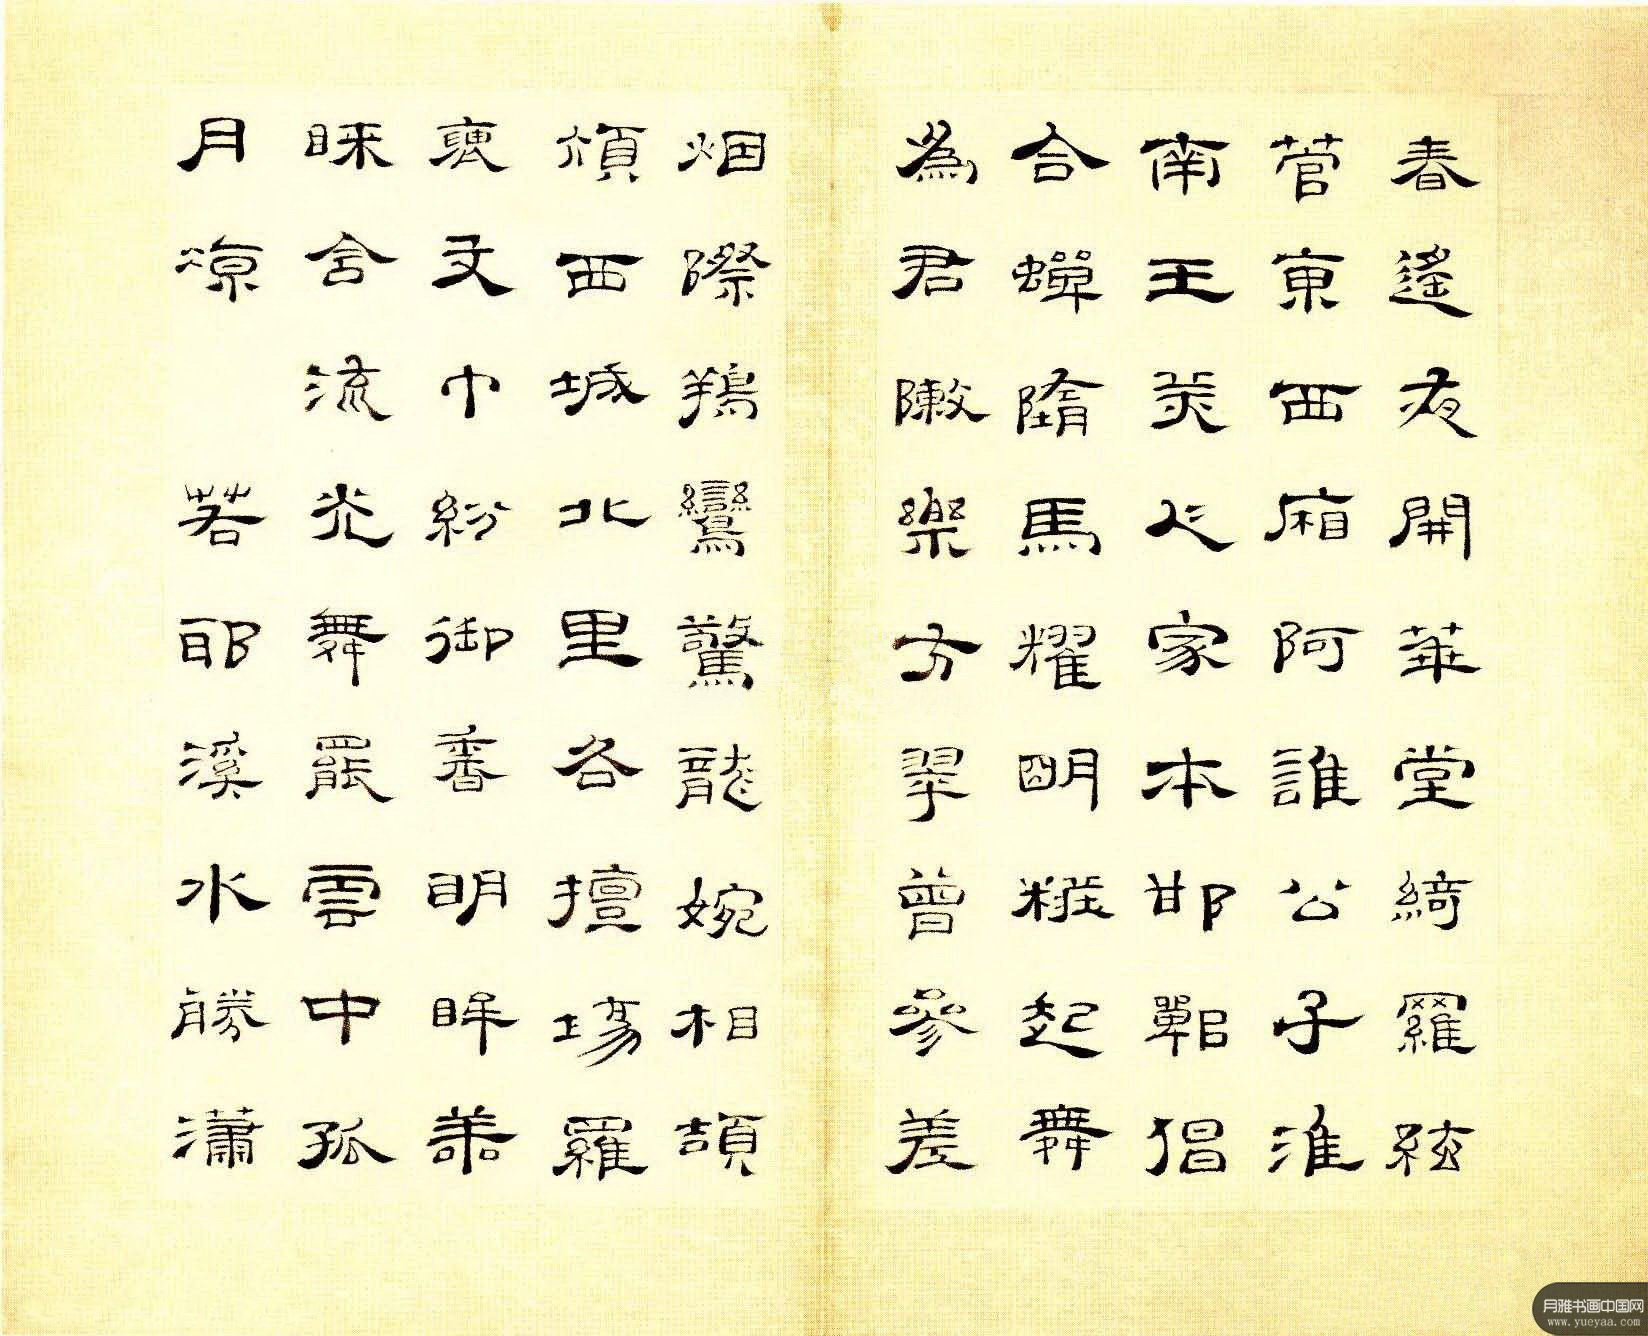 春遙夜開華堂綺羅絃
菅東西廂阿誰公子淮
南王美人家本邯鄲倡
合蟬隋馬耀明糚起舞
為君敶樂方翠曾參差
烟際鸞驚龍婉相頡
頏西城北里各擅場羅
褎文巾紛御香明眸善
睞含流光舞罷雲中孤
月凉 若耶溪水勝瀟
月雅书画中国网
www.yueyaa.com